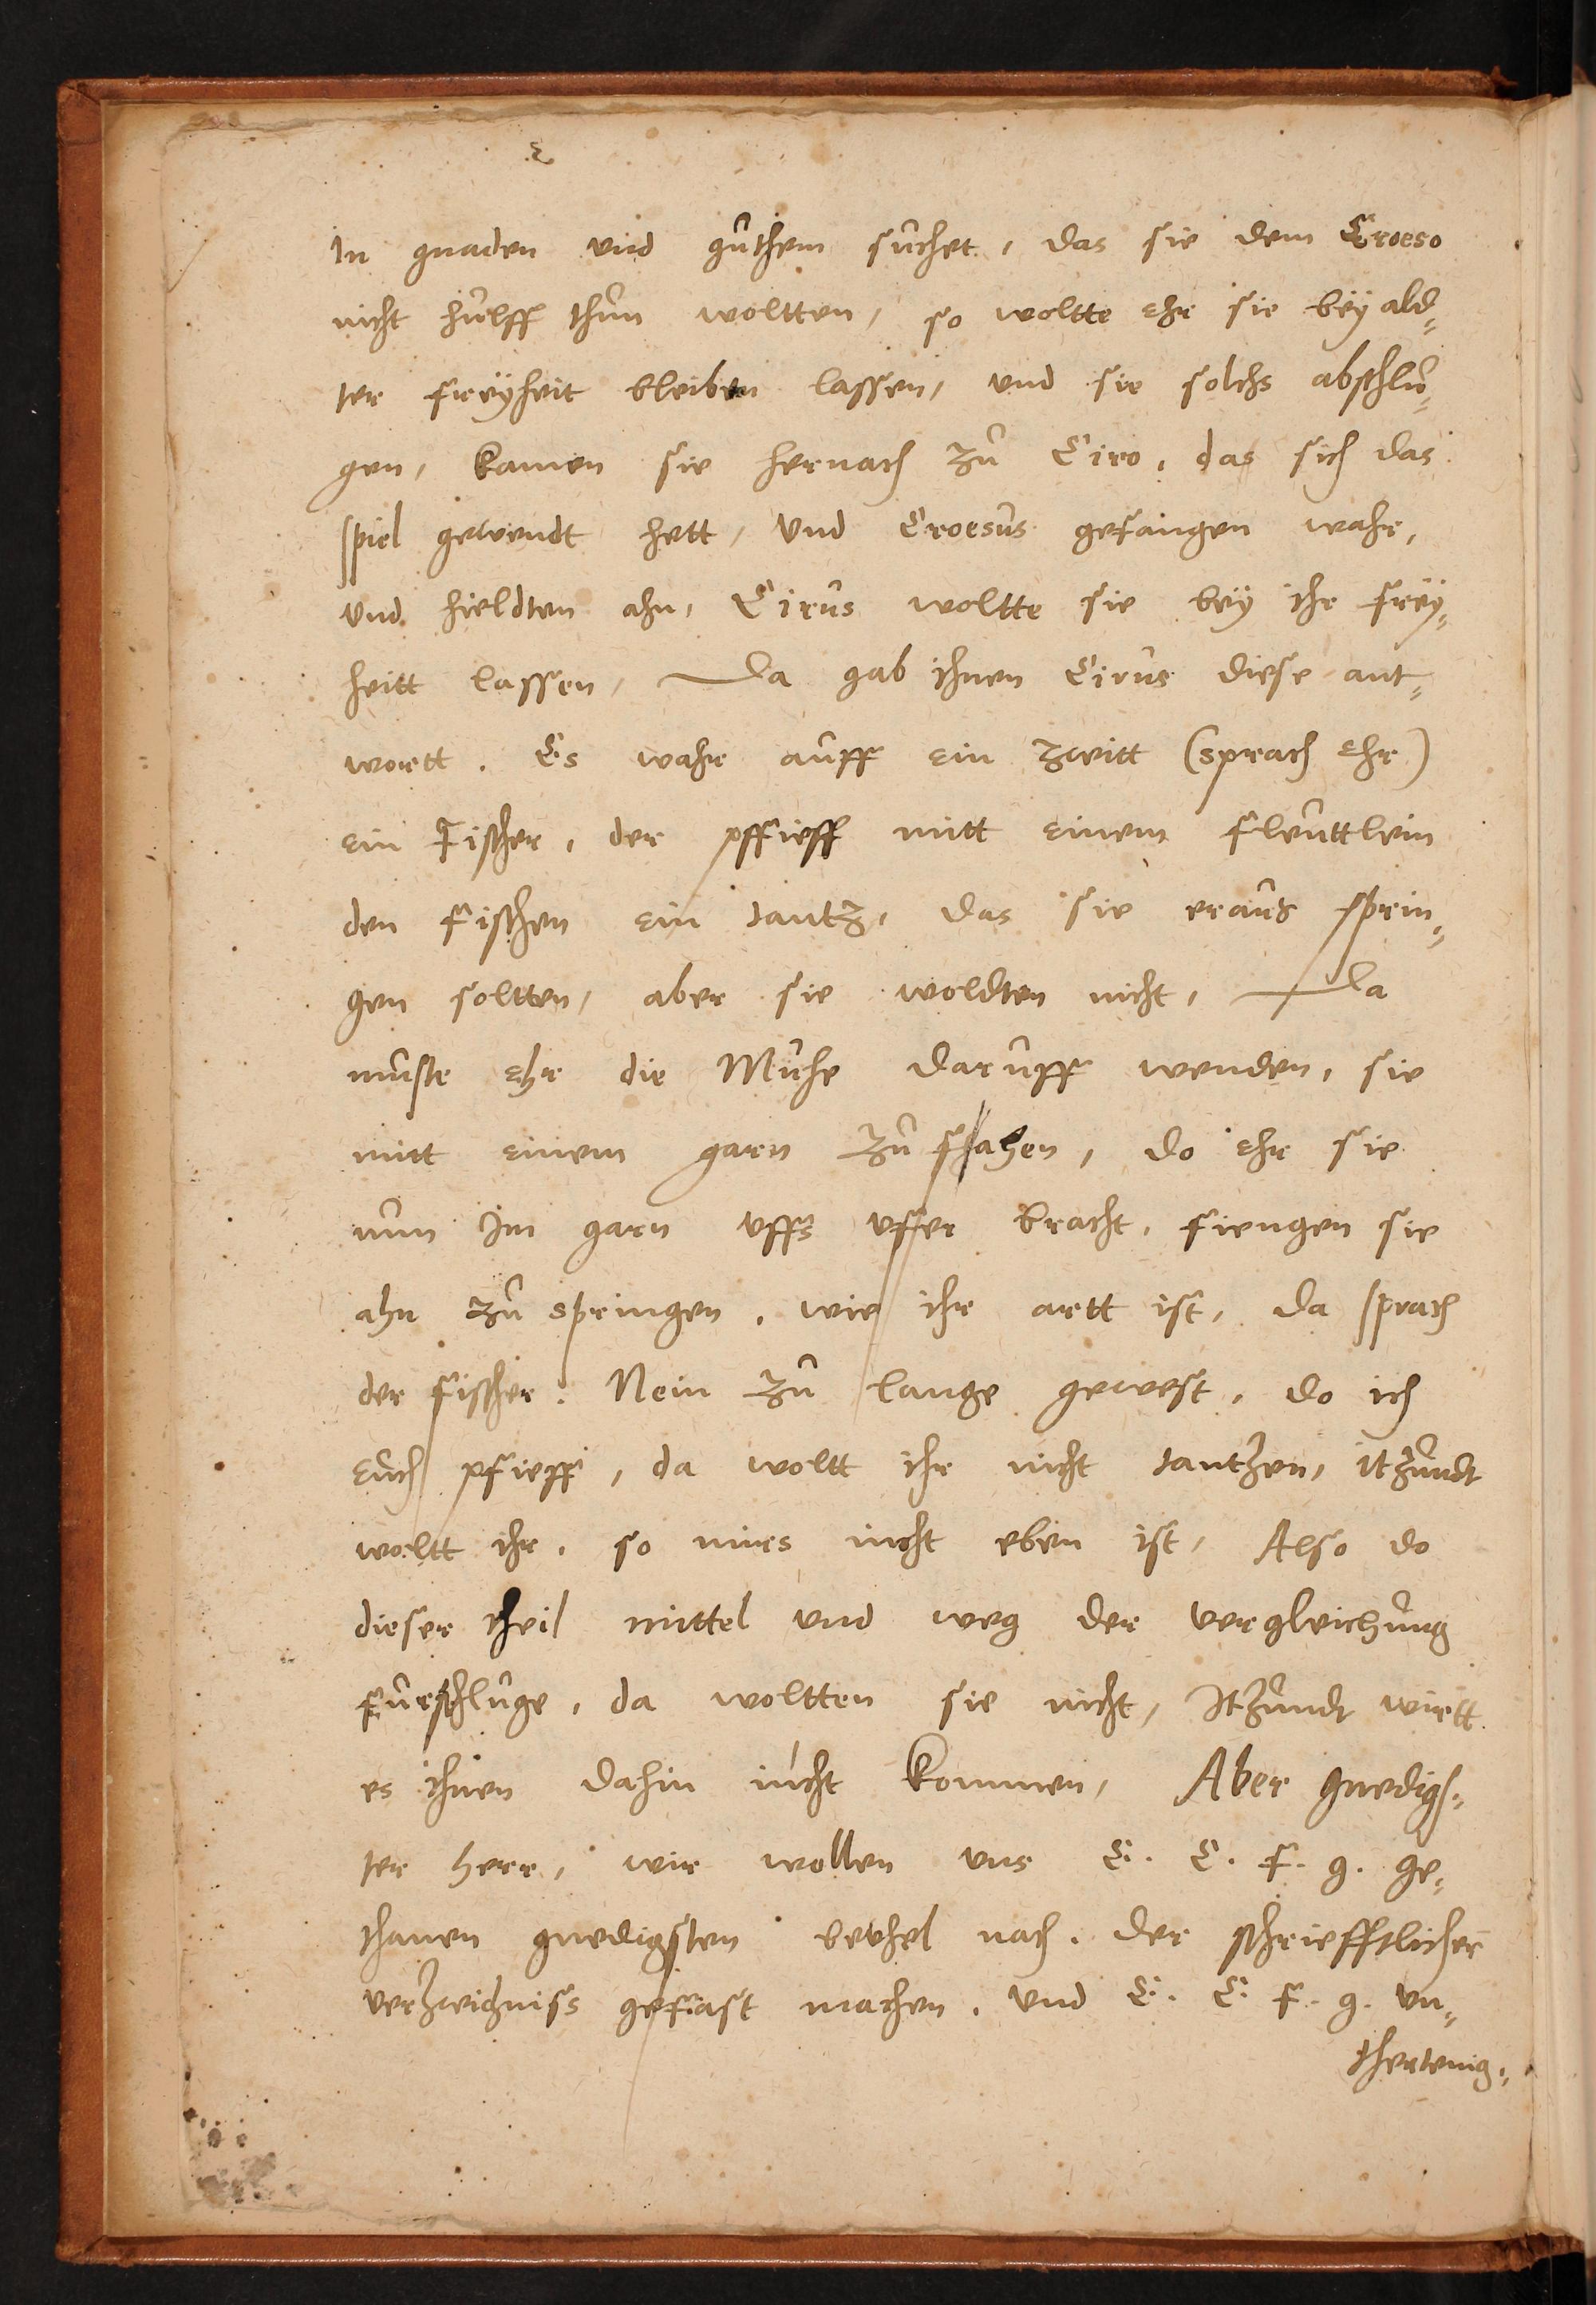 In gnaden vnd guthem suchet, das sie dem Croeso
nicht hulff thun woltten, so woltte ehr sie beÿ ald=
ter freÿheit bleiben lassen, vnd sie solchs abschlu=
gen, kamen sie hernach zu Ciro, das sich das
spiel gewendt hett, vnd Croesus gefangen wahr,
vnd hieldten ahn, Cirus woltte sie beÿ ihr freÿ=
heitt lassen, Da gab ihnen Cirus diese ant=
wortt. Es wahr auff ein zeitt (sprach ehr)
ein Fischer, der pffieff mitt einem fleuttlein
den fischen ein tantz, das sie eraus sprin=
gen soltten, aber sie woldten nicht, Da
muste ehr die Muhe daruff wenden, sie
mitt einem garn zu fahen, do ehr sie
nun Im garn vffs vfer bracht, fiengen sie
ahn zu springen, wie ihr artt ist, da sprach
der fischer: Nein zu lange gewest, do ich
euch pfieff, da woltt ihr nicht tantzen, itzundt
woltt ihr, so mirs nicht eben ist, Also do
dieser theil mittel vnd weg der vergleichung
furschluge, da woltten sie nicht, Itzundt wirtt
es ihnen dahin nicht kommen, Aber gnedigs=
ter herr, wir wollen vns E. C. f. g. ge=
thanen gnedigsten bevhel nach, der schriefftlicher
verzeichniss gefast machen, vnd E. C. f. g. vn=
thertenig=